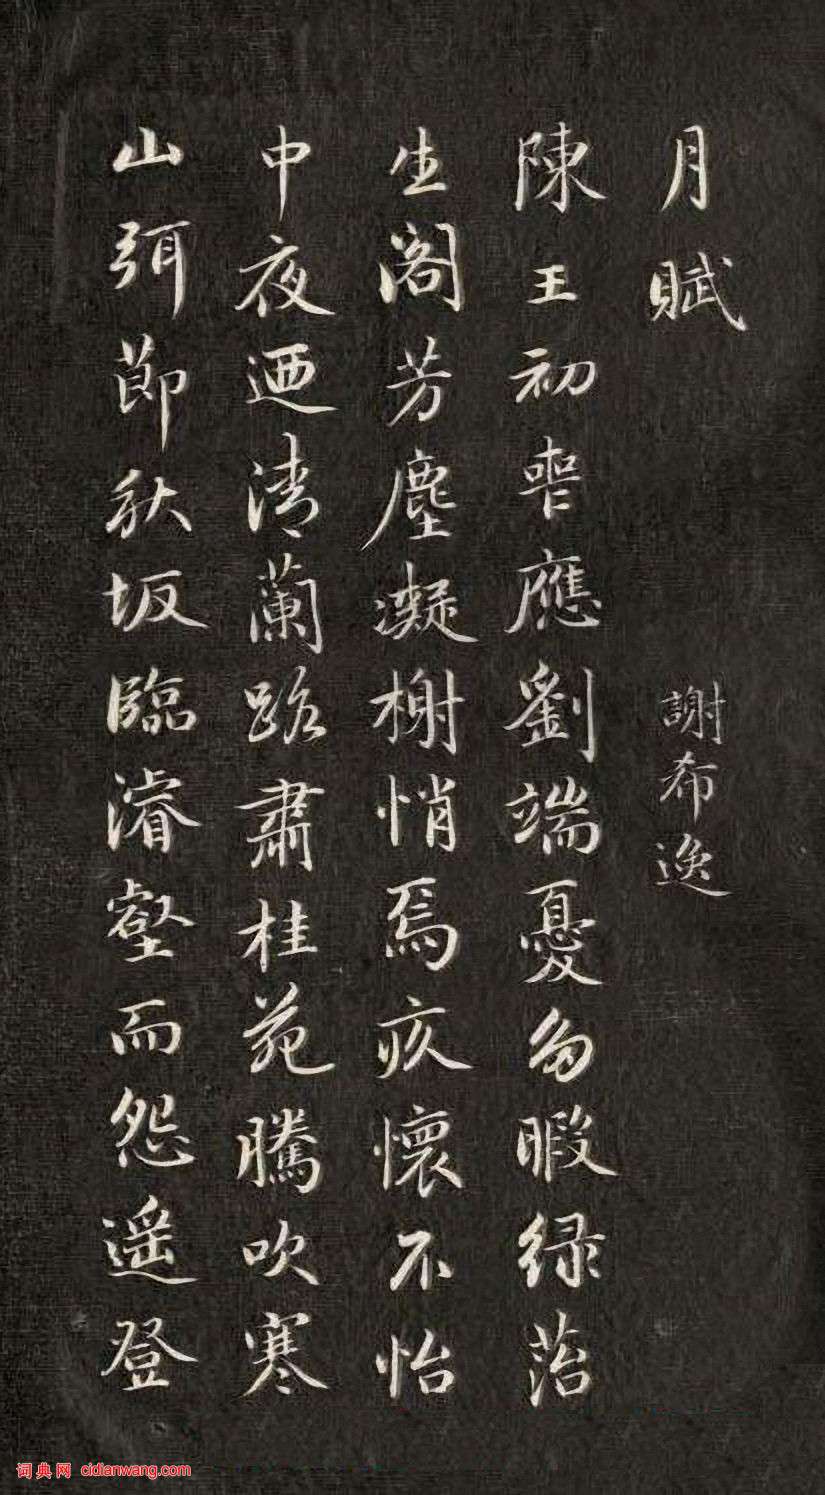 月賦 謝希逸
陳王初喪應劉端憂多暇緑菭
生閣芳塵凝榭悄焉疚懷不怡
中夜迺清蘭路肅桂苑騰吹寒
山弭節秋坂臨濬壑而怨遥登
词典网 cidianwang.com